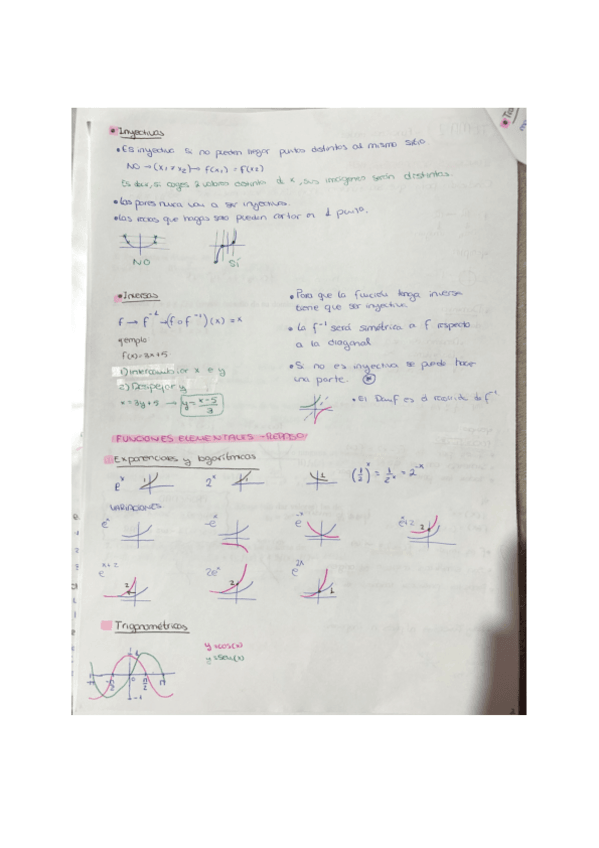 Inyectivas
• Es inyectiva si no pueden llegar puntos distintos al mismo sitio
NO → (x₁ ≠ x₂) → f(x₁) = f(x₂)
Es decir, si coges 2 valores distintos de x, sus imágenes serán distintas.
• Las pares nunca van a ser inyectivas.
• Las rectas que hagas solo pueden cortar en 1 punto.
NO
SÍ
• Inversas
f → f⁻¹ → (f o f⁻¹)(x) = x
ejemplo
f(x) = 3x+5
1) Intercambiar x e y
2) Despejar y
x = 3y+5 → y = x-5/3
• Para que la función tenga inversa
tiene que ser inyectiva.
• La f⁻¹ será simétrica a f respecto
a la diagonal
• Si no es inyectiva se puede hacer
una parte.
• El Dom f es el recorrido de f⁻¹
FUNCIONES ELEMENTALES - REPASO
Exponenciales y logarítmicas
eˣ
2ˣ
(1/2)ˣ = 1/2ˣ = 2⁻ˣ
VARIACIONES
eˣ
-eˣ
e⁻ˣ
eˣ+2
3
eˣ⁺²
2eˣ
2
e²ˣ
Trigonométricas
y = cos(x)
y = sen(x)
1
0
π/2
π
-1